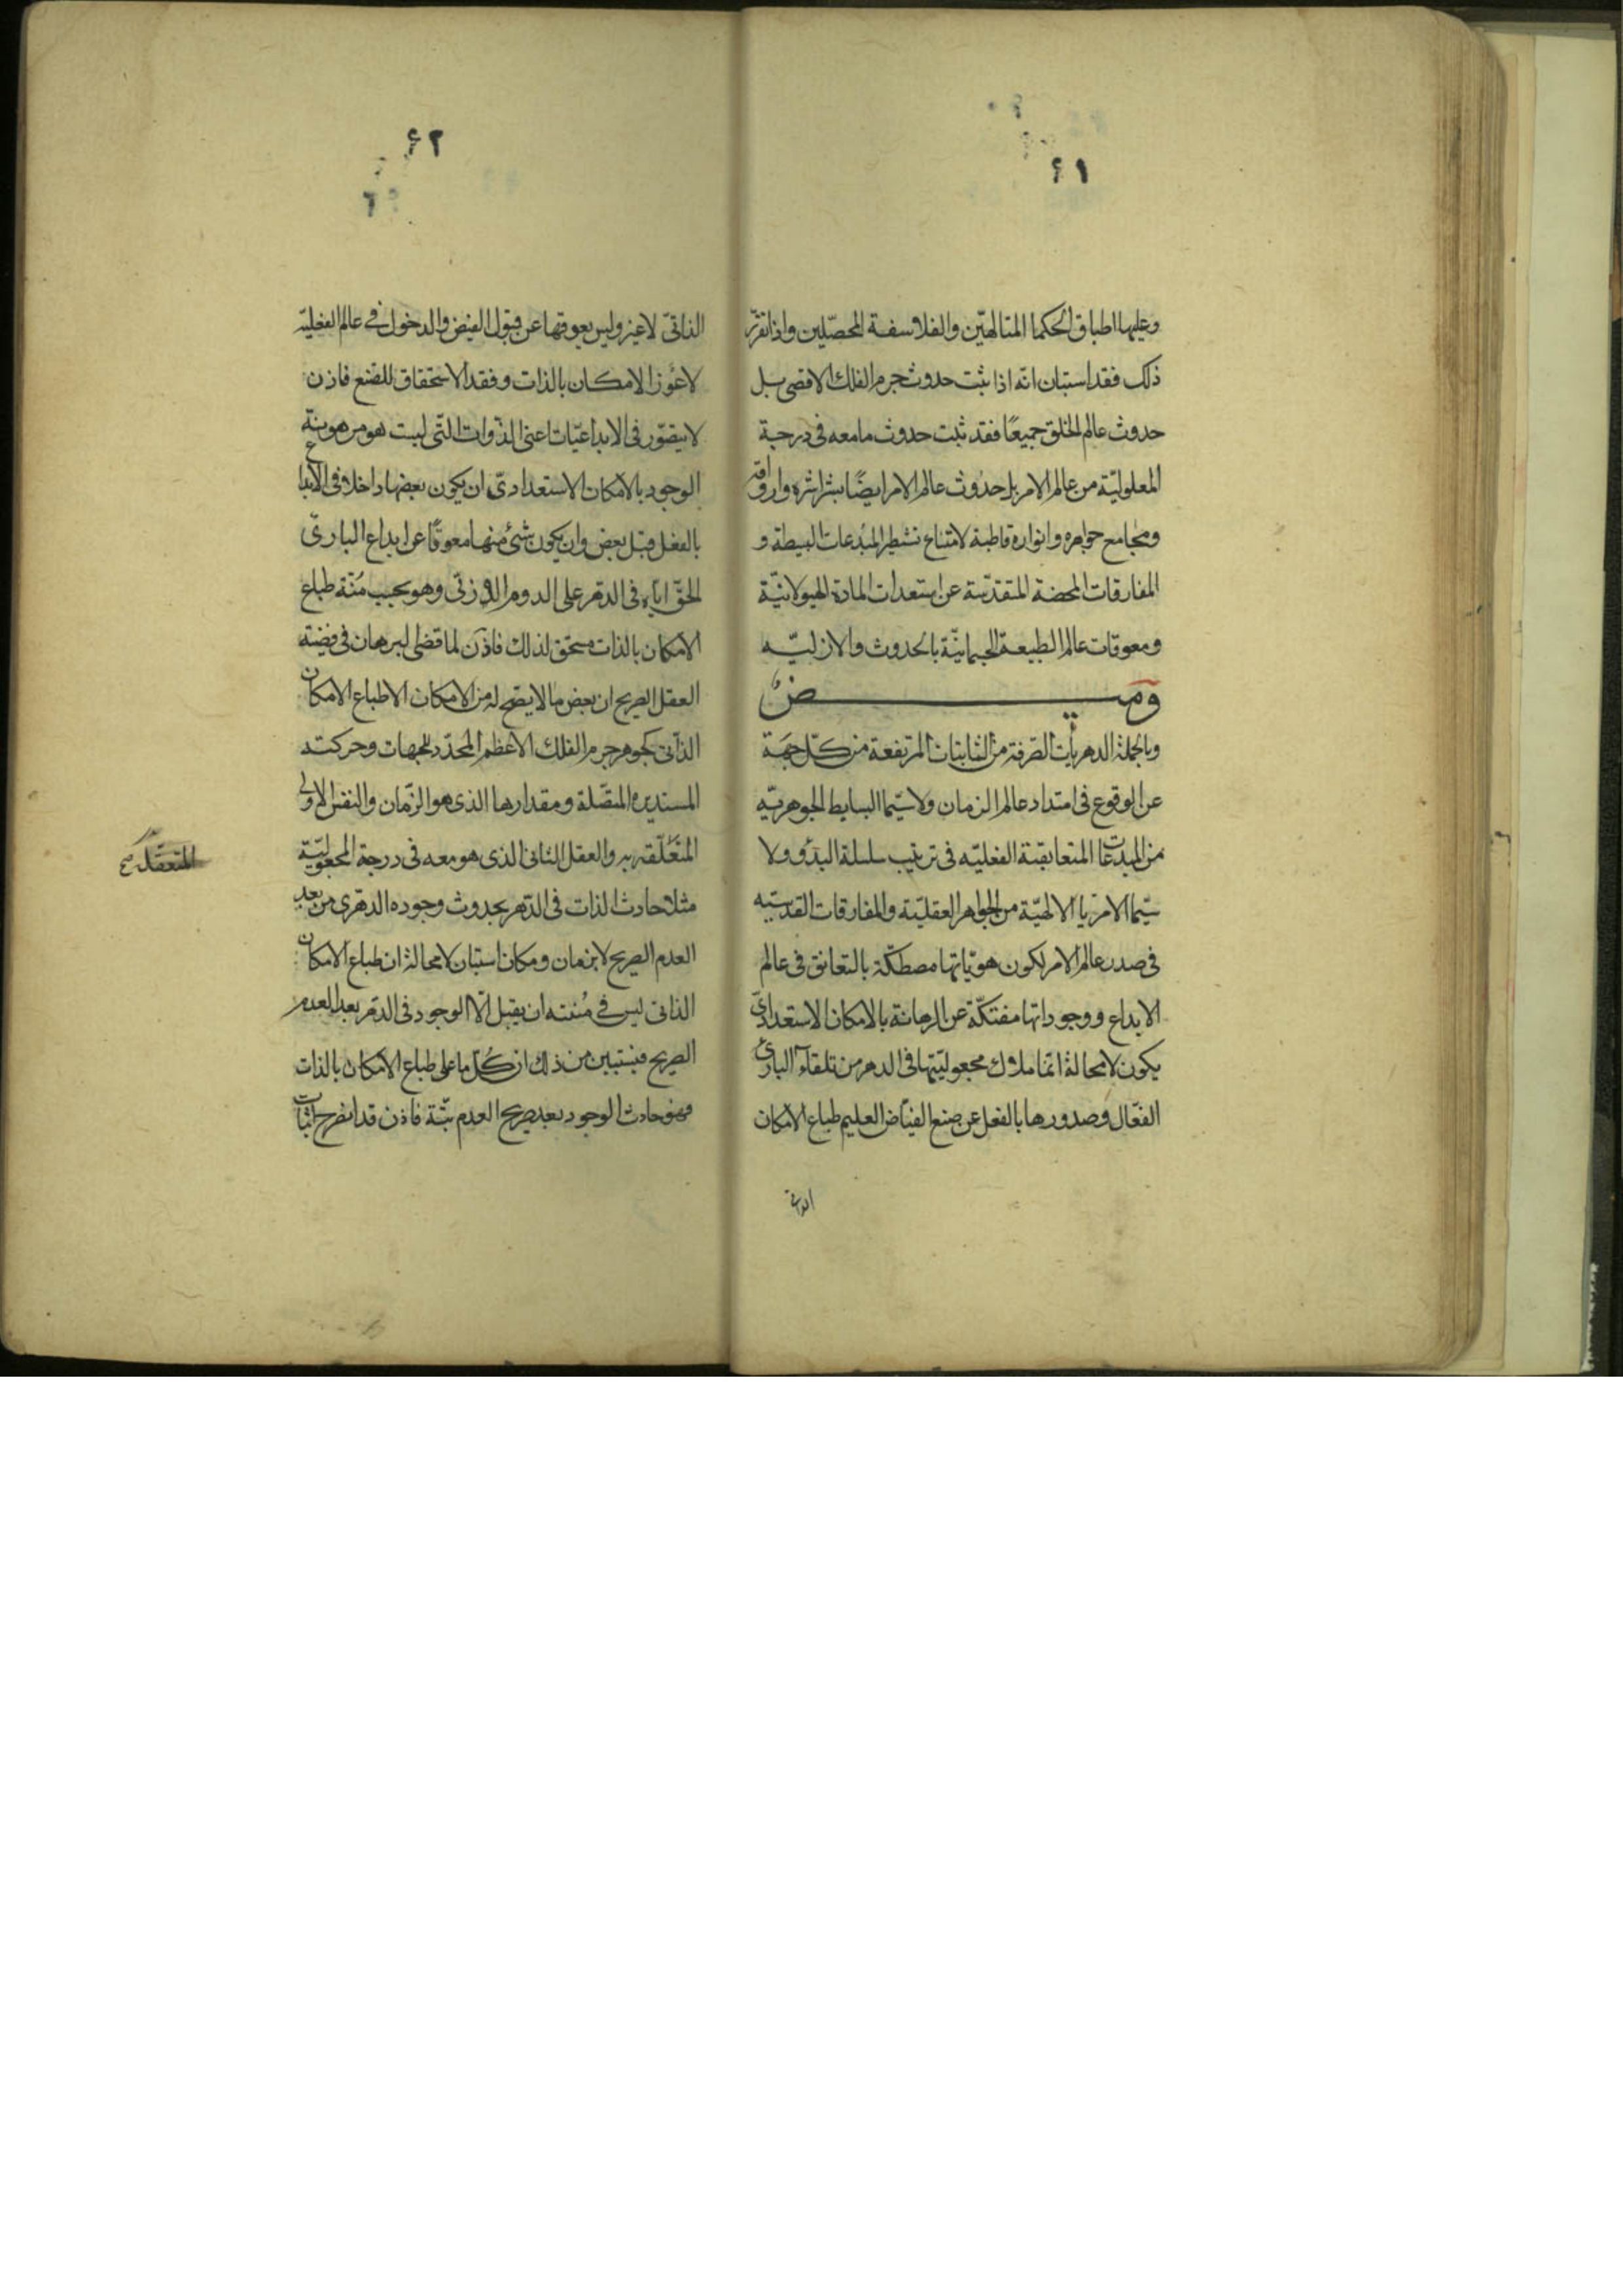 ۶۱
وعليها اطباق الحكما المتالهين والفلاسفة المحصّلين واذا تقرّر
ذلك فقد استبان انه اذا ثبت حدوث جرم الفلك الاقصى بل
حدوث عالم الخلق جميعًا فقد ثبت حدوث ما معه فى درجة
المعلوليّة من عالم الامر بل حدوث عالم الامر ايضًا بشراشره وارواقه
ومجامع جواهره وانواره قاطبة لامتناع تشطر المبدعات البسيطة و
المفارقات المحضة المتقدّسة عن استعدادات المادة الهيولانيّة
ومعوقات عالم الطبيعة الجسمانيّة بالحدوث والازليّه
ومـيـض
وبالجملة الدهريات الصّرفة من الثابتات المرتفعة من كلّ جهة
عن الوقوع فى امتداد عالم الزمان ولا سيّما البسايط الجوهريّه
من المبدعات المتعابقة الفعليّه فى ترتيب سلسلة البدؤ ولا
سيّما الامريا الالهيّة من الجواهر العقليّة والمفارقات القدسيّه
فى صدر عالم الامر لكون هويّاتها مصطكّة بالتعانق فى عالم
الابداع ووجوداتها مفتكّة عن الرهانة بالامكان الاستعدادىّ
يكون لا محالة انّما ملاك مجعوليّتها فى الدهر من تلقاء البارئ
الفعّال وصدورها بالفعل عن صنع الفيّاض العليم طباع الامكان
الذاتى
۶۲
الذاتىّ لا غير وليس يعوقها عن قبول الفيض والدخول فى عالم الفعليّه
لا عوز الامكان بالذات وفقد الاستحقاق للصّنع فاذن
لا يتصّور فى الابداعيّات اعنى الذّوات التى ليست هو مرهونة
الوجود بالامكان الاستعدادىّ ان يكون بعضها داخلا فى الابداع
بالفعل قبل بعض وان يكون شئ منها معوقًا عن ابداع البارىّ
الحقّ ايّاه فى الدّهر على الدوم اللازنى وهو بحسب مُنّة طباع
الامكان بالذات مستحق لذلك فاذن لما قضى البرهان فى قضيّة
العقل الصريح ان بعض ما لا يصح له من الامكان الا طباع الامكان
الذاتى كجوهر جرم الفلك الاعظم المحدّد للجهات وحركته
المستديره المتصّلة ومقدارها الذى هو الزّمان والنفس الاولى
المتعلّقه به والعقل الثانى الذى هو معه فى درجة المجعوليّة
المتعقله صح
مثلا حادث الذات فى الدّهر بحدوث وجوده الدهرى من بعد
العدم الصريح لا بزمان ومكان استبان لا محالة ان طباع الامكان
الذاتى ليس فى مُنته ان يقبل الّا الوجود فى الدّهر بعد العدم
الصريح فيستبين من ذلك ان كُلّ ما على طباع الامكان بالذات
فهو حادث الوجود بعد صريح العدم بتّة فاذن قد انصرح اثبات